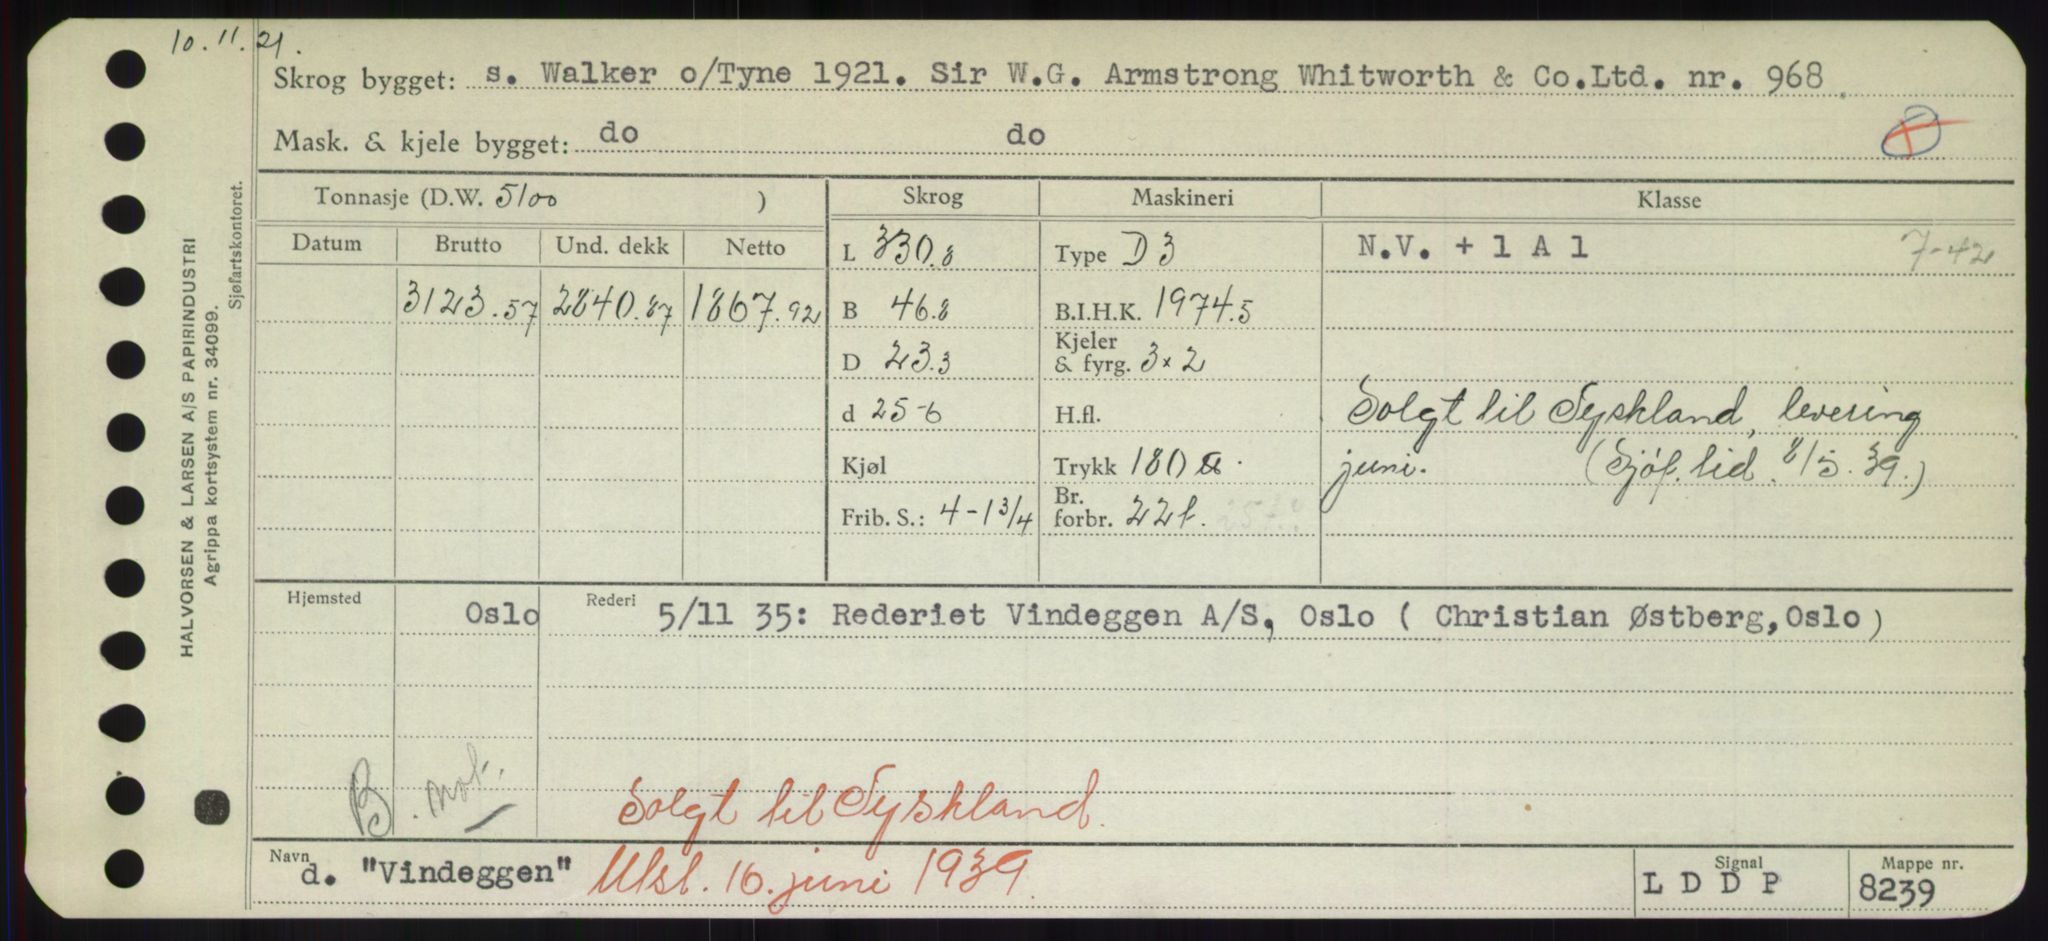 10.11.21.
Skrog bygget: s. Walker o/Tyne 1921. Sir W.G. Armstrong Whitworth & Co.Ltd. nr. 968
Mask. & kjele bygget: do do
Tonnasje (D.W. 5100 ) Skrog Maskineri Klasse
Datum Brutto Und. dekk Netto L 330.8 Type D3 N.V. + 1 A 1 7-42
3123.57 2840.87 1867.92 B 46.8 B.I.H.K. 1974.5
D 23.3 Kjeler & fyrg. 3 x 2
d 25-6 H.fl. Solgt til Tyskland, levering
Kjøl Trykk 180 juni. (Sjøf. tid. 8/5.39.)
Frib. S.: 4-1 3/4 Br. forbr. 22t.
Hjemsted Oslo Rederi 5/11 35: Rederiet Vindeggen A/S, Oslo ( Christian Østberg, Oslo )
B. not.
Solgt til Tyskland.
Navn d. "Vindeggen" Utsl. 16. juni 1939. Signal L D D P Mappe nr. 8239
HALVORSEN & LARSEN A/S PAPIRINDUSTRI
Agrippa kortsystem nr. 34099.
Sjøfartskontoret.